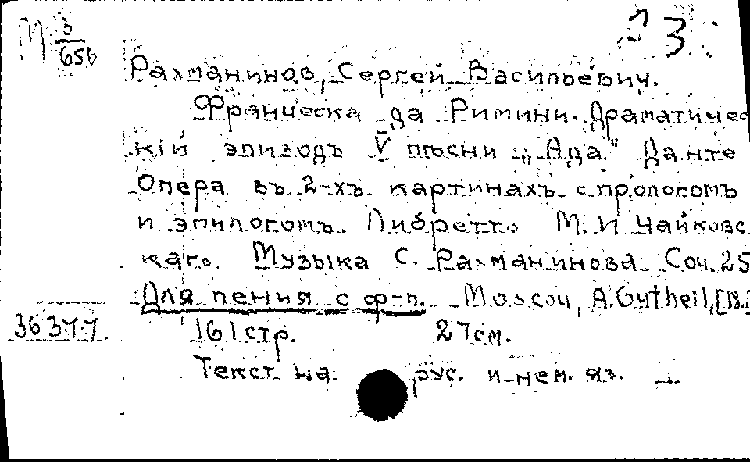 М 3/656
23
Рахманинов, Сергей Васильевич.
Франческа да Римини. Драматичес
кiй эпизодъ V пѣсни „Ада" Данте
Опера въ 2-хъ картинахъ с прологомъ
и эпилогомъ. Либретто М. И Чайковс
каго. Музыка С. Рахманинова Соч. 25
Для пения с ф-п. Moscou, A. Gutheil, [В.
36377
161 стр. 27 см.
Текст на рус. и нем. яз.